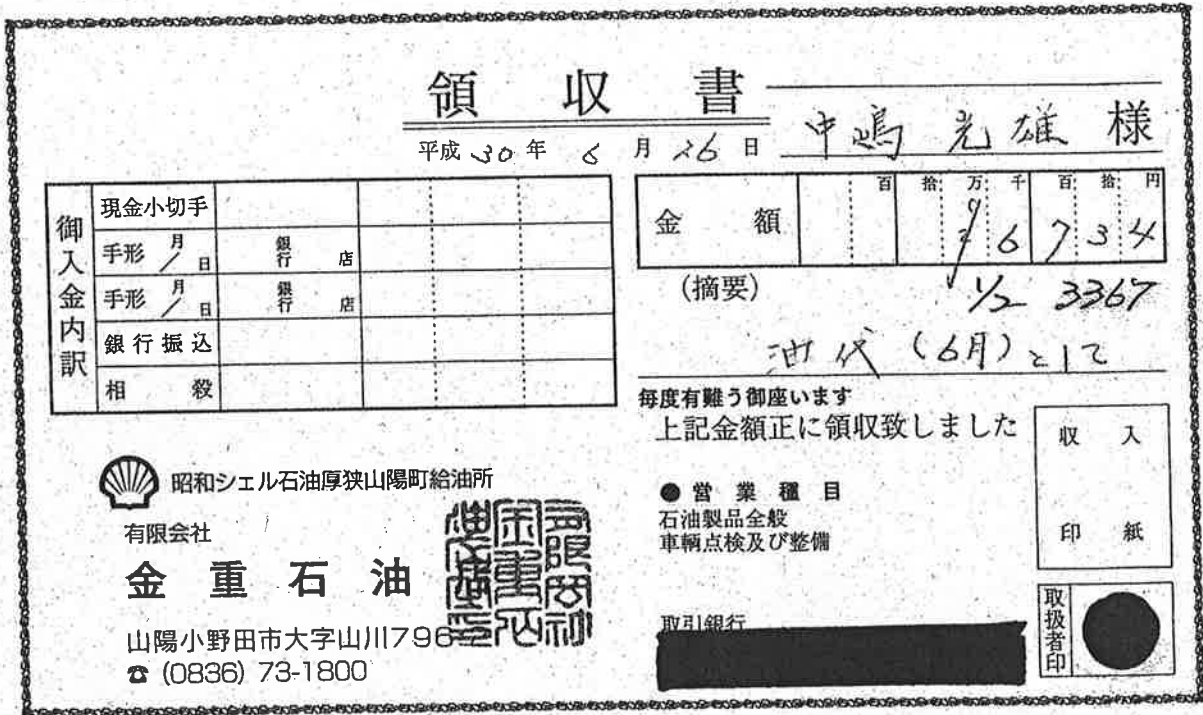 領収書
平成30年6月26日 中嶋光雄様
御入金内訳
現金小切手
手形 月/日 銀行 店
手形 月/日 銀行 店
銀行振込
相殺
百 拾 万 千 百 拾 円
金額 6734
(摘要)
1/2 3367
油代(6月)として
毎度有難う御座います
上記金額正に領収致しました
収入
印紙
昭和シェル石油厚狭山陽町給油所
有限会社
金重石油
山陽小野田市大字山川796
☎(0836)73-1800
●営業種目
石油製品全般
車輌点検及び整備
取引銀行
取扱者印